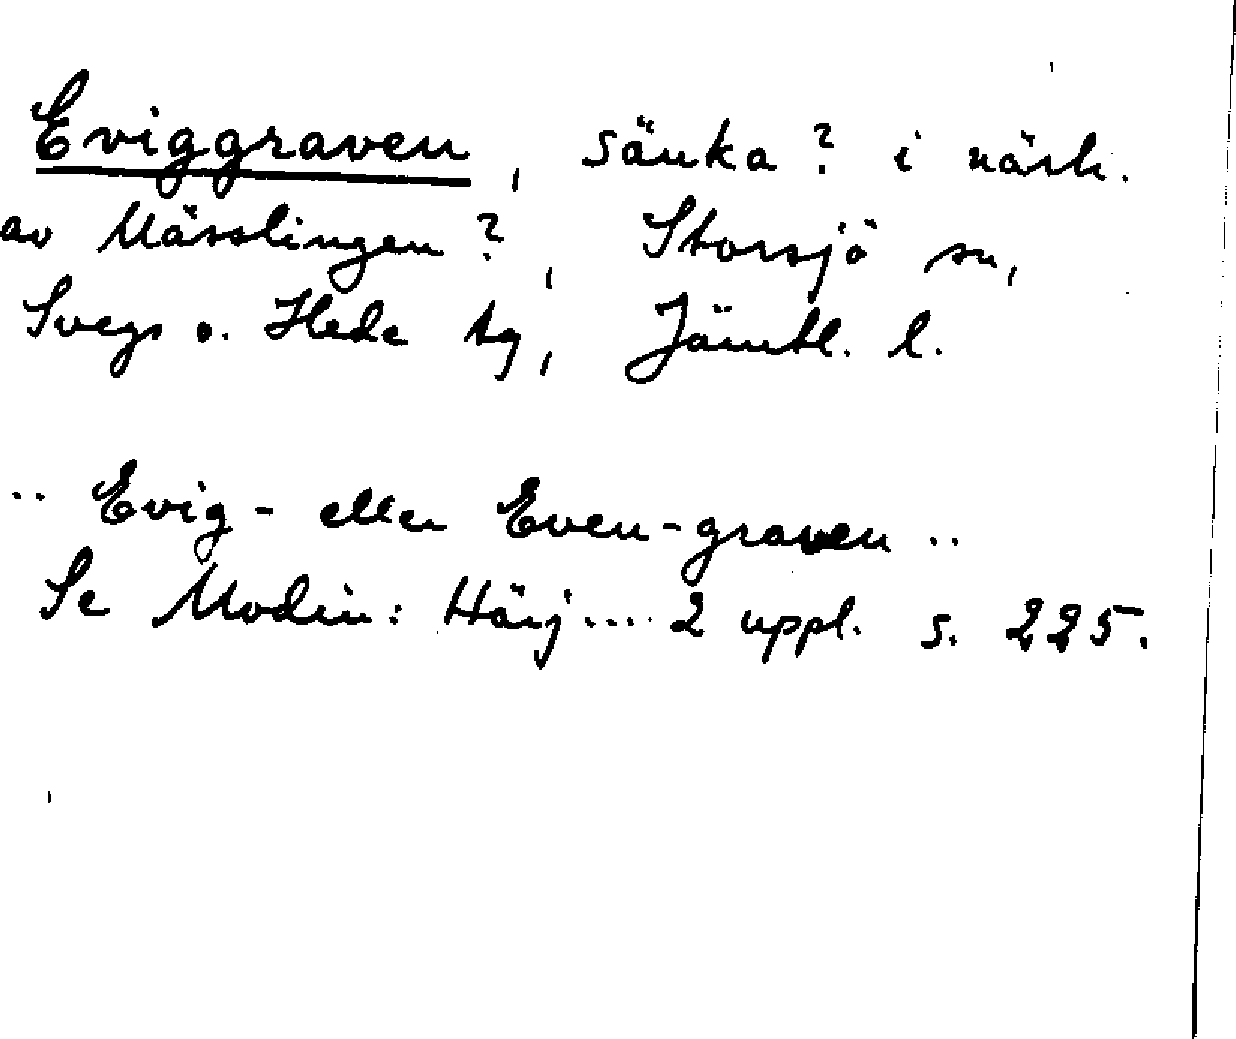 Eviggraven, sänka? i närh.
av Mässlingen?, Storsjö sn,
Svegs o. Hede tg, Jämtl. l.
.. Evig- eller Even-graven ..
Se Modin: Härj.... 2 uppl. s. 225.